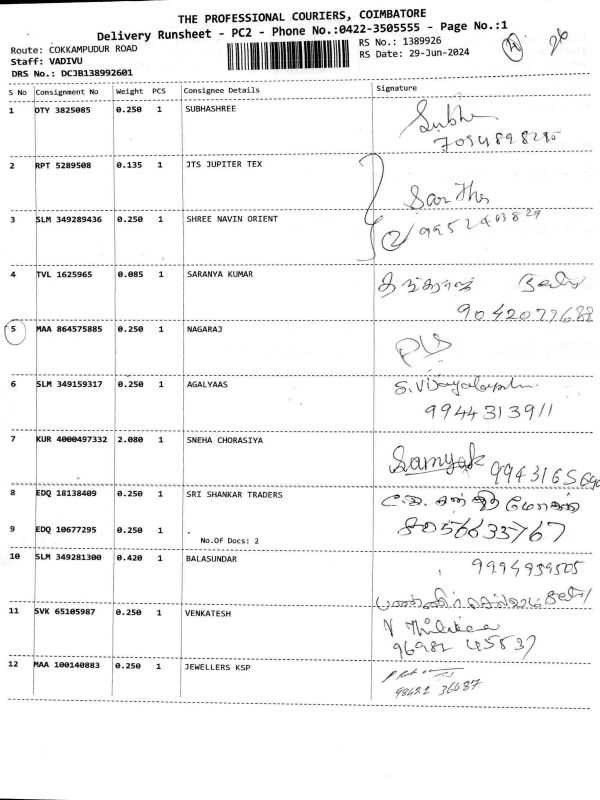 THE PROFESSIONAL COURIERS, COIMBATORE
Delivery Runsheet - PC2 - Phone No.:0422-3505555 - Page No.:1
Route: COKKAMPUDUR ROAD
RS No.: 1389926
Staff: VADIVU
RS Date: 29-Jun-2024
DRS No.: DCJB138992601
S No Consignment No Weight PCS Consignee Details Signature
1 DTY 3825085 0.250 1 SUBHASHREE
2 RPT 5289508 0.135 1 JTS JUPITER TEX
3 SLM 349289436 0.250 1 SHREE NAVIN ORIENT
2
4 TVL 1625965 0.085 1 SARANYA KUMAR
5 MAA 864575885 0.250 1 NAGARAJ
6 SLM 349159317 0.250 1 AGALYAAS
9944313911
7 KUR 4000497332 2.080 1 SNEHA CHORASIYA
Samyak
8 EDQ 18138409 0.250 1 SRI SHANKAR TRADERS
8056633767
9 EDQ 10677295 0.250 1
No.Of Docs: 2
10 SLM 349281300 0.420 1 BALASUNDAR
9994959505
11 SVK 65105987 0.250 1 VENKATESH
12 MAA 100140883 0.250 1 JEWELLERS KSP